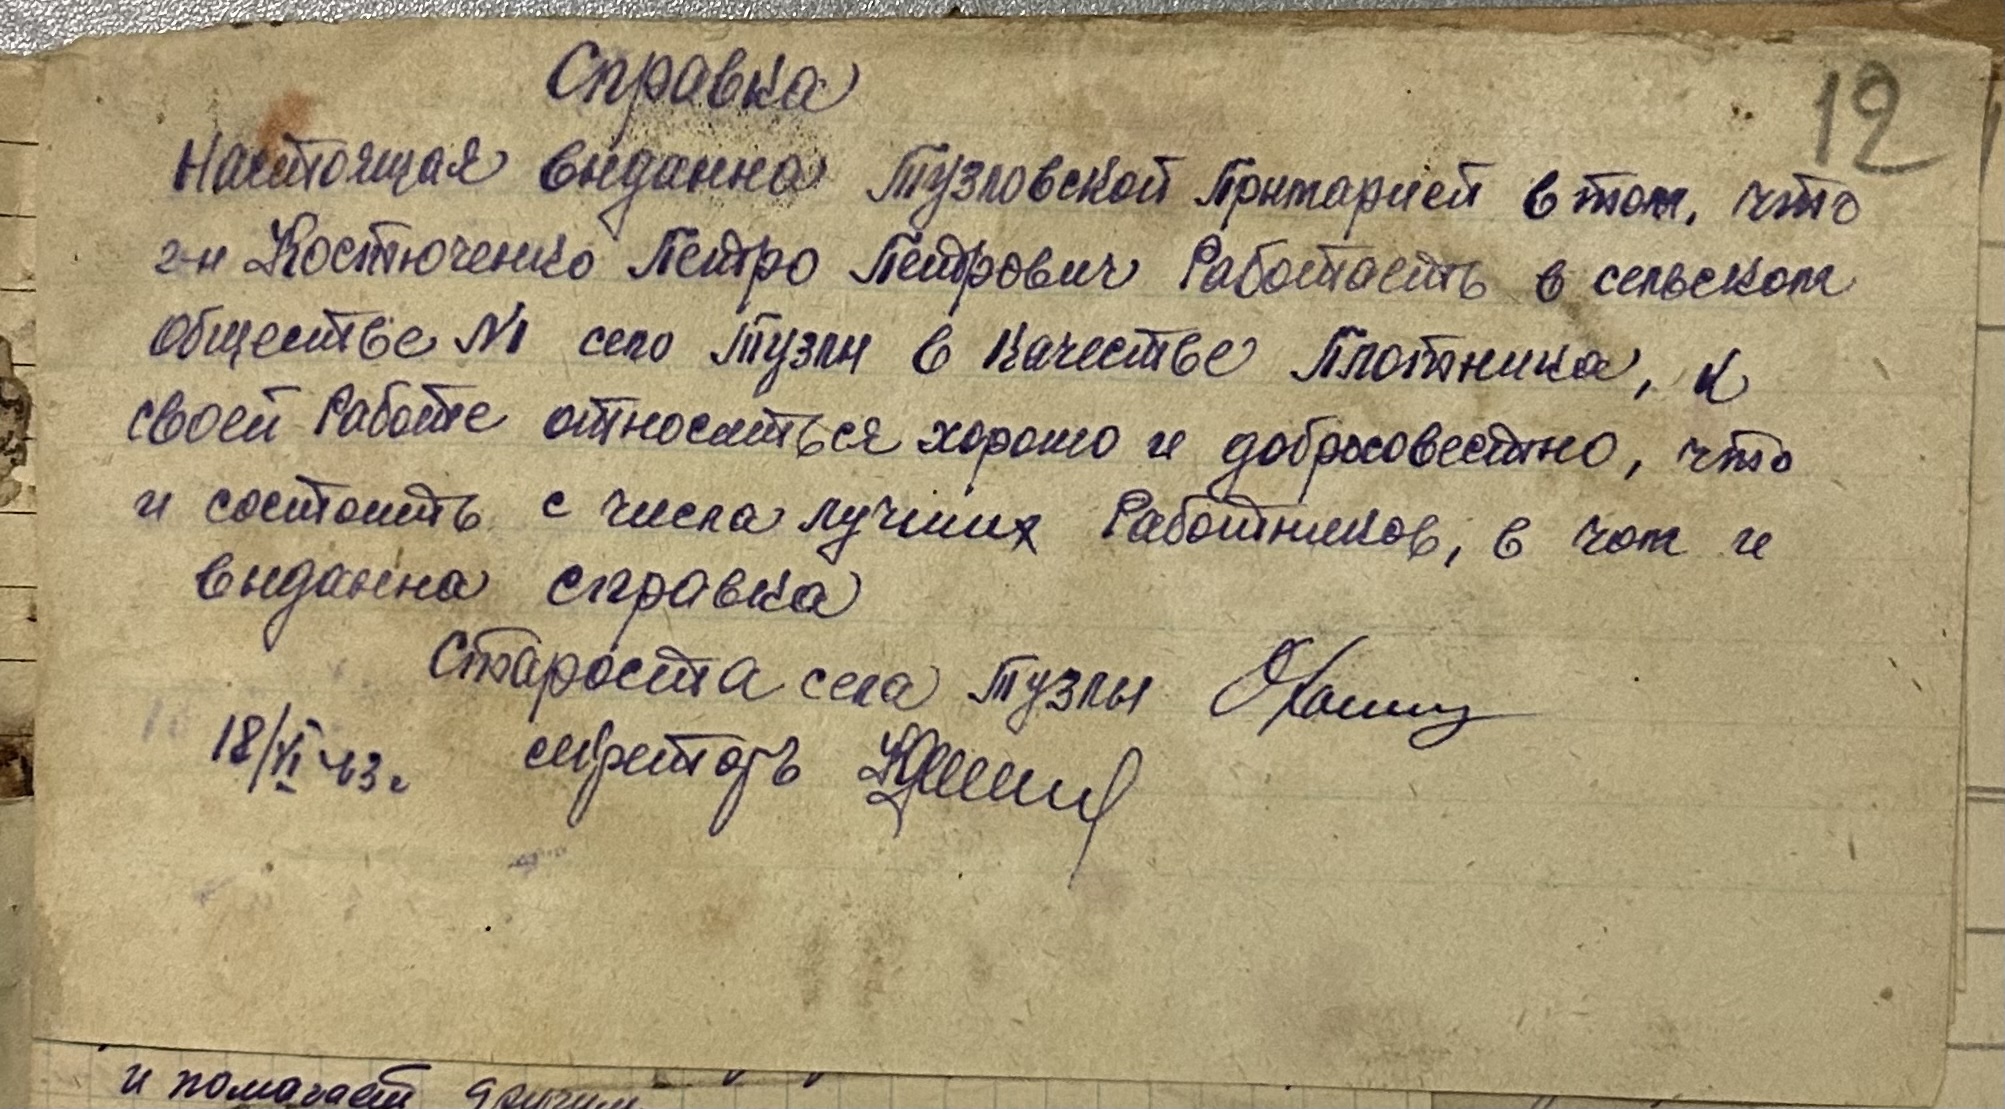 12
Справка
Настоящая выданна Тузловской Примарией в том, что
г-н Костюченко Петро Петрович Работаеть в сельском
Обществе №1 село Тузлы в Качестве Плотника, к
своей Работе относиться хорошо и добрсовестно, что
и состоить с числа лучших Работников, в чом и
выданна справка
Староста села Тузлы
18/VI 43 г. секретарь
и помагает другим